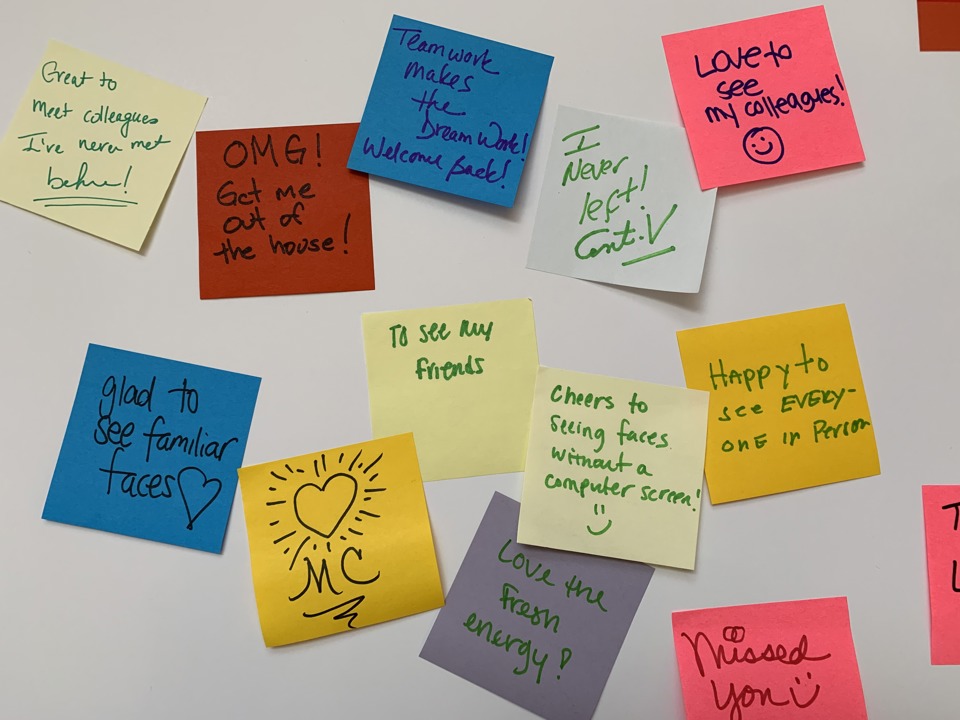 Great to
meet colleagues
I've never met
before!
OMG!
Get me
out of
the house!
Teamwork
makes
the
Dream Work!
Welcome Back!
I
Never
left!
Love to
see
my colleagues!
To see my
friends
Happy to
see EVERY-
ONE in Person
glad to
see familiar
faces
Cheers to
seeing faces
without a
computer screen!
MC
Love the
Fresh
energy!
Missed
you